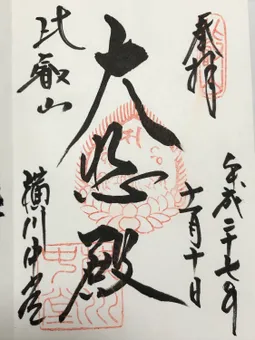 奉拝
平成二十七年
十一月十日
大悲殿
比叡山
横川中堂